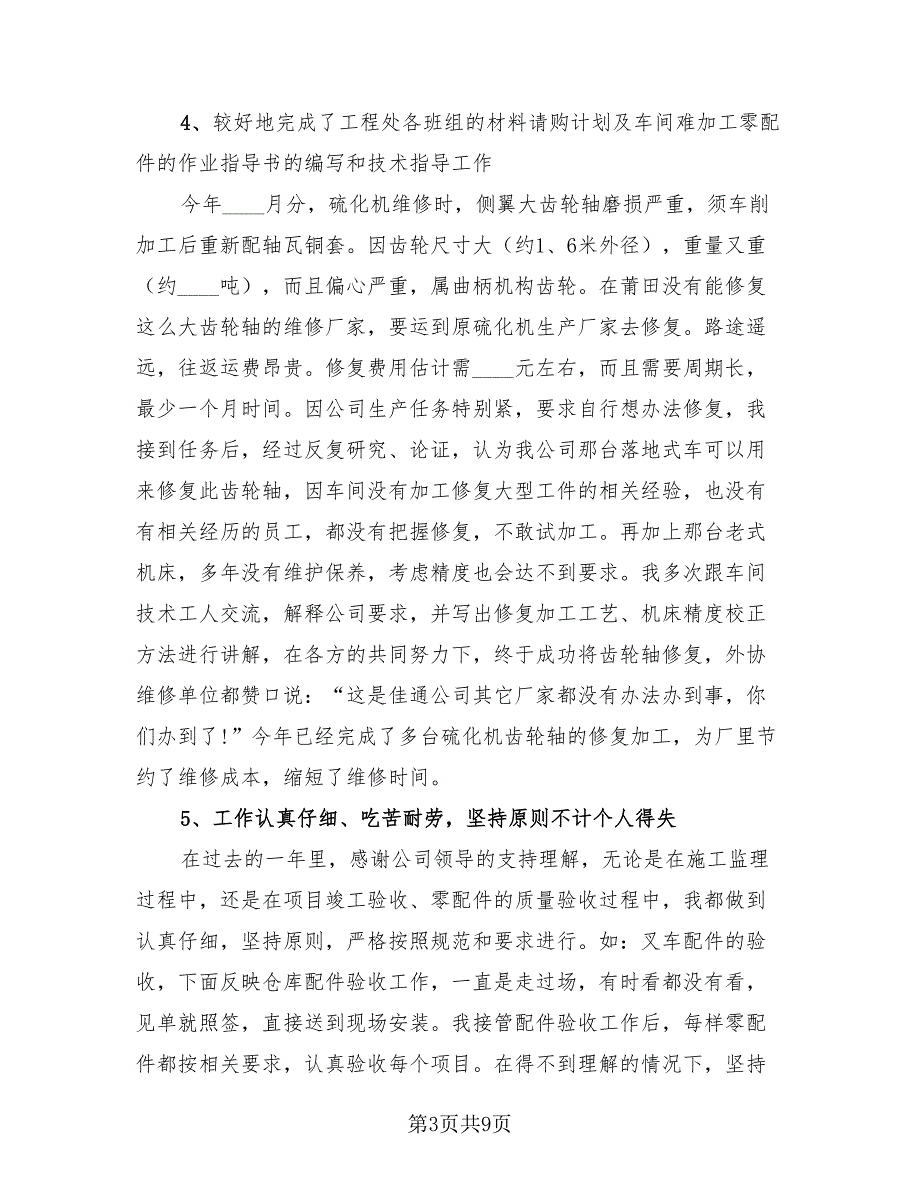 4、较好地完成了工程处各班组的材料请购计划及车间难加工零配
件的作业指导书的编写和技术指导工作
今年____月分，硫化机维修时，侧翼大齿轮轴磨损严重，须车削
加工后重新配轴瓦铜套。因齿轮尺寸大（约1、6米外径），重量又重
（约____吨），而且偏心严重，属曲柄机构齿轮。在莆田没有能修复
这么大齿轮轴的维修厂家，要运到原硫化机生产厂家去修复。路途遥
远，往返运费昂贵。修复费用估计需____元左右，而且需要周期长，
最少一个月时间。因公司生产任务特别紧，要求自行想办法修复，我
接到任务后，经过反复研究、论证，认为我公司那台落地式车可以用
来修复此齿轮轴，因车间没有加工修复大型工件的相关经验，也没有
有相关经历的员工，都没有把握修复，不敢试加工。再加上那台老式
机床，多年没有维护保养，考虑精度也会达不到要求。我多次跟车间
技术工人交流，解释公司要求，并写出修复加工工艺、机床精度校正
方法进行讲解，在各方的共同努力下，终于成功将齿轮轴修复，外协
维修单位都赞口说：“这是佳通公司其它厂家都没有办法办到事，你
们办到了!”今年已经完成了多台硫化机齿轮轴的修复加工，为厂里节
约了维修成本，缩短了维修时间。
5、工作认真仔细、吃苦耐劳，坚持原则不计个人得失
在过去的一年里，感谢公司领导的支持理解，无论是在施工监理
过程中，还是在项目竣工验收、零配件的质量验收过程中，我都做到
认真仔细，坚持原则，严格按照规范和要求进行。如：叉车配件的验
收，下面反映仓库配件验收工作，一直是走过场，有时看都没有看，
见单就照签，直接送到现场安装。我接管配件验收工作后，每样零配
件都按相关要求，认真验收每个项目。在得不到理解的情况下，坚持
第3页共9页